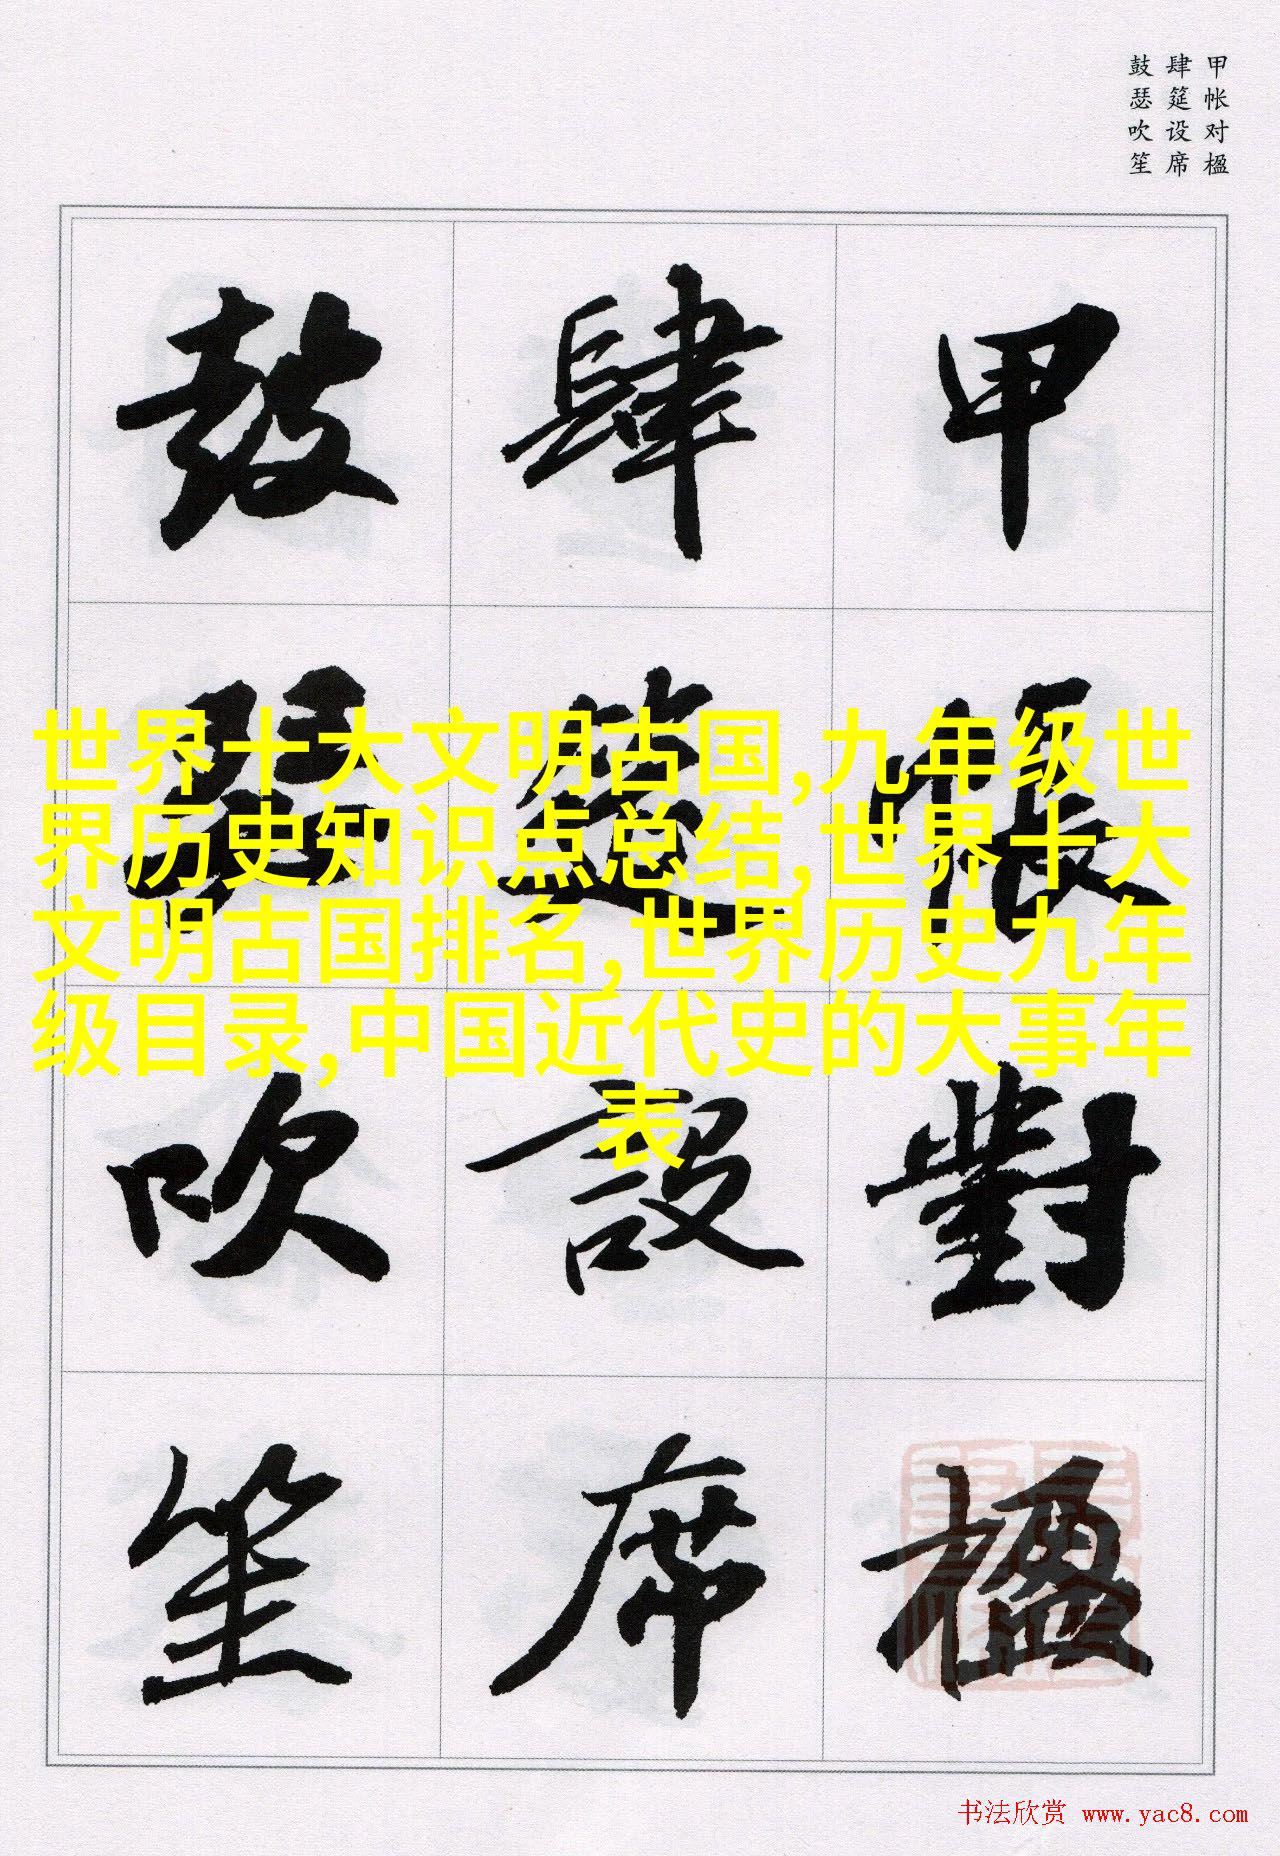 甲帐对楹
肆筵设席
鼓瑟吹笙
甲帳對楹
肆筵設席
鼓瑟吹笙
世界十大文明古国,九年级世
界历史知识点总结,世界十大
文明古国排名,世界历史九年
级目录,中国近代史的大事年
表
书法欣赏 www.yac8.com